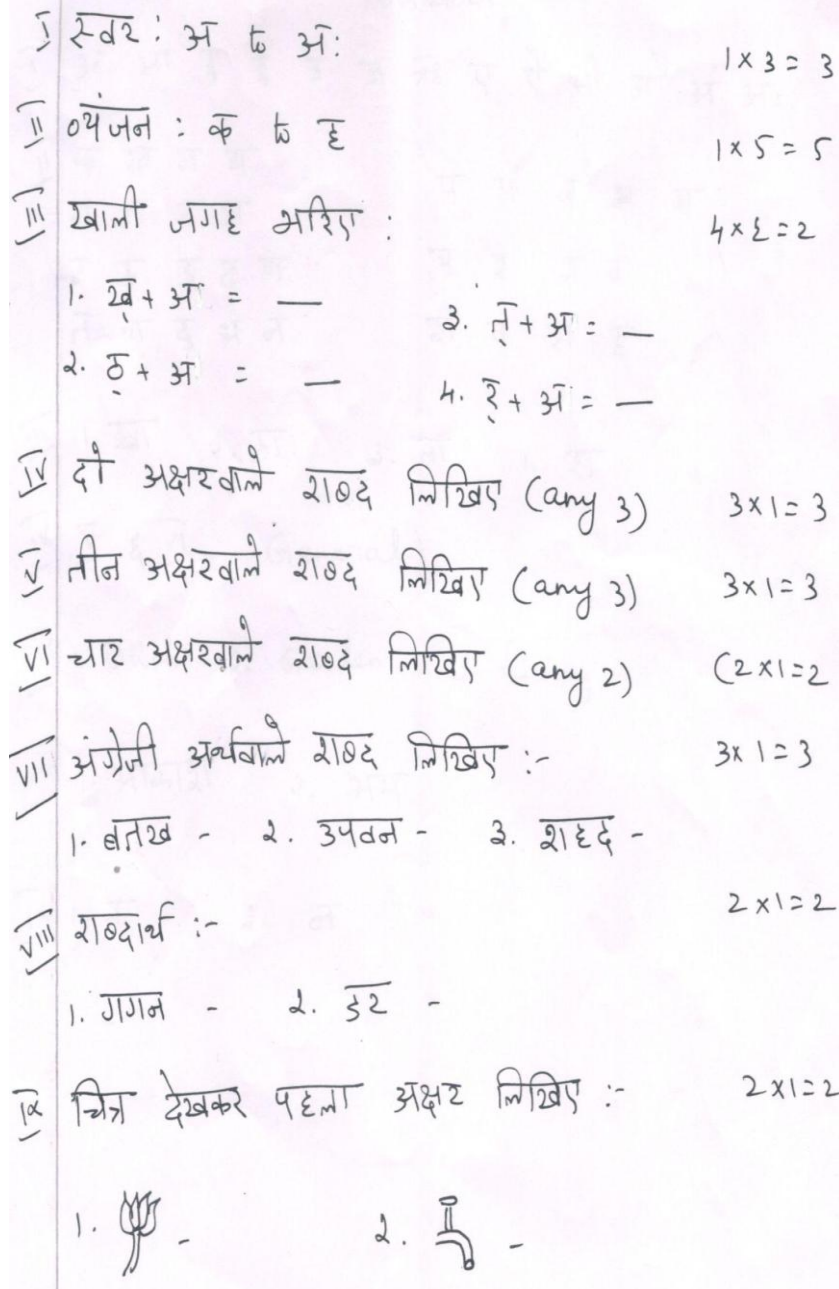 I स्वर : अ to अः 1 x 3 = 3
II व्यंजन : क to ह 1 x 5 = 5
III खाली जगह भरिए : 4 x ½ = 2
1. ख् + अ = — 3. त् + अ = —
2. ठ् + अ = — 4. र् + अ = —
IV दो अक्षरवाले शब्द लिखिए (any 3) 3 x 1 = 3
V तीन अक्षरवाले शब्द लिखिए (any 3) 3 x 1 = 3
VI चार अक्षरवाले शब्द लिखिए (any 2) (2 x 1 = 2
VII अंग्रेजी अर्थवाले शब्द लिखिए :- 3 x 1 = 3
1. बतख - 2. उपवन - 3. शहद -
VIII शब्दार्थ :- 2 x 1 = 2
1. गगन - 2. डर -
IX चित्र देखकर पहला अक्षर लिखिए :- 2 x 1 = 2
1. - 2. -